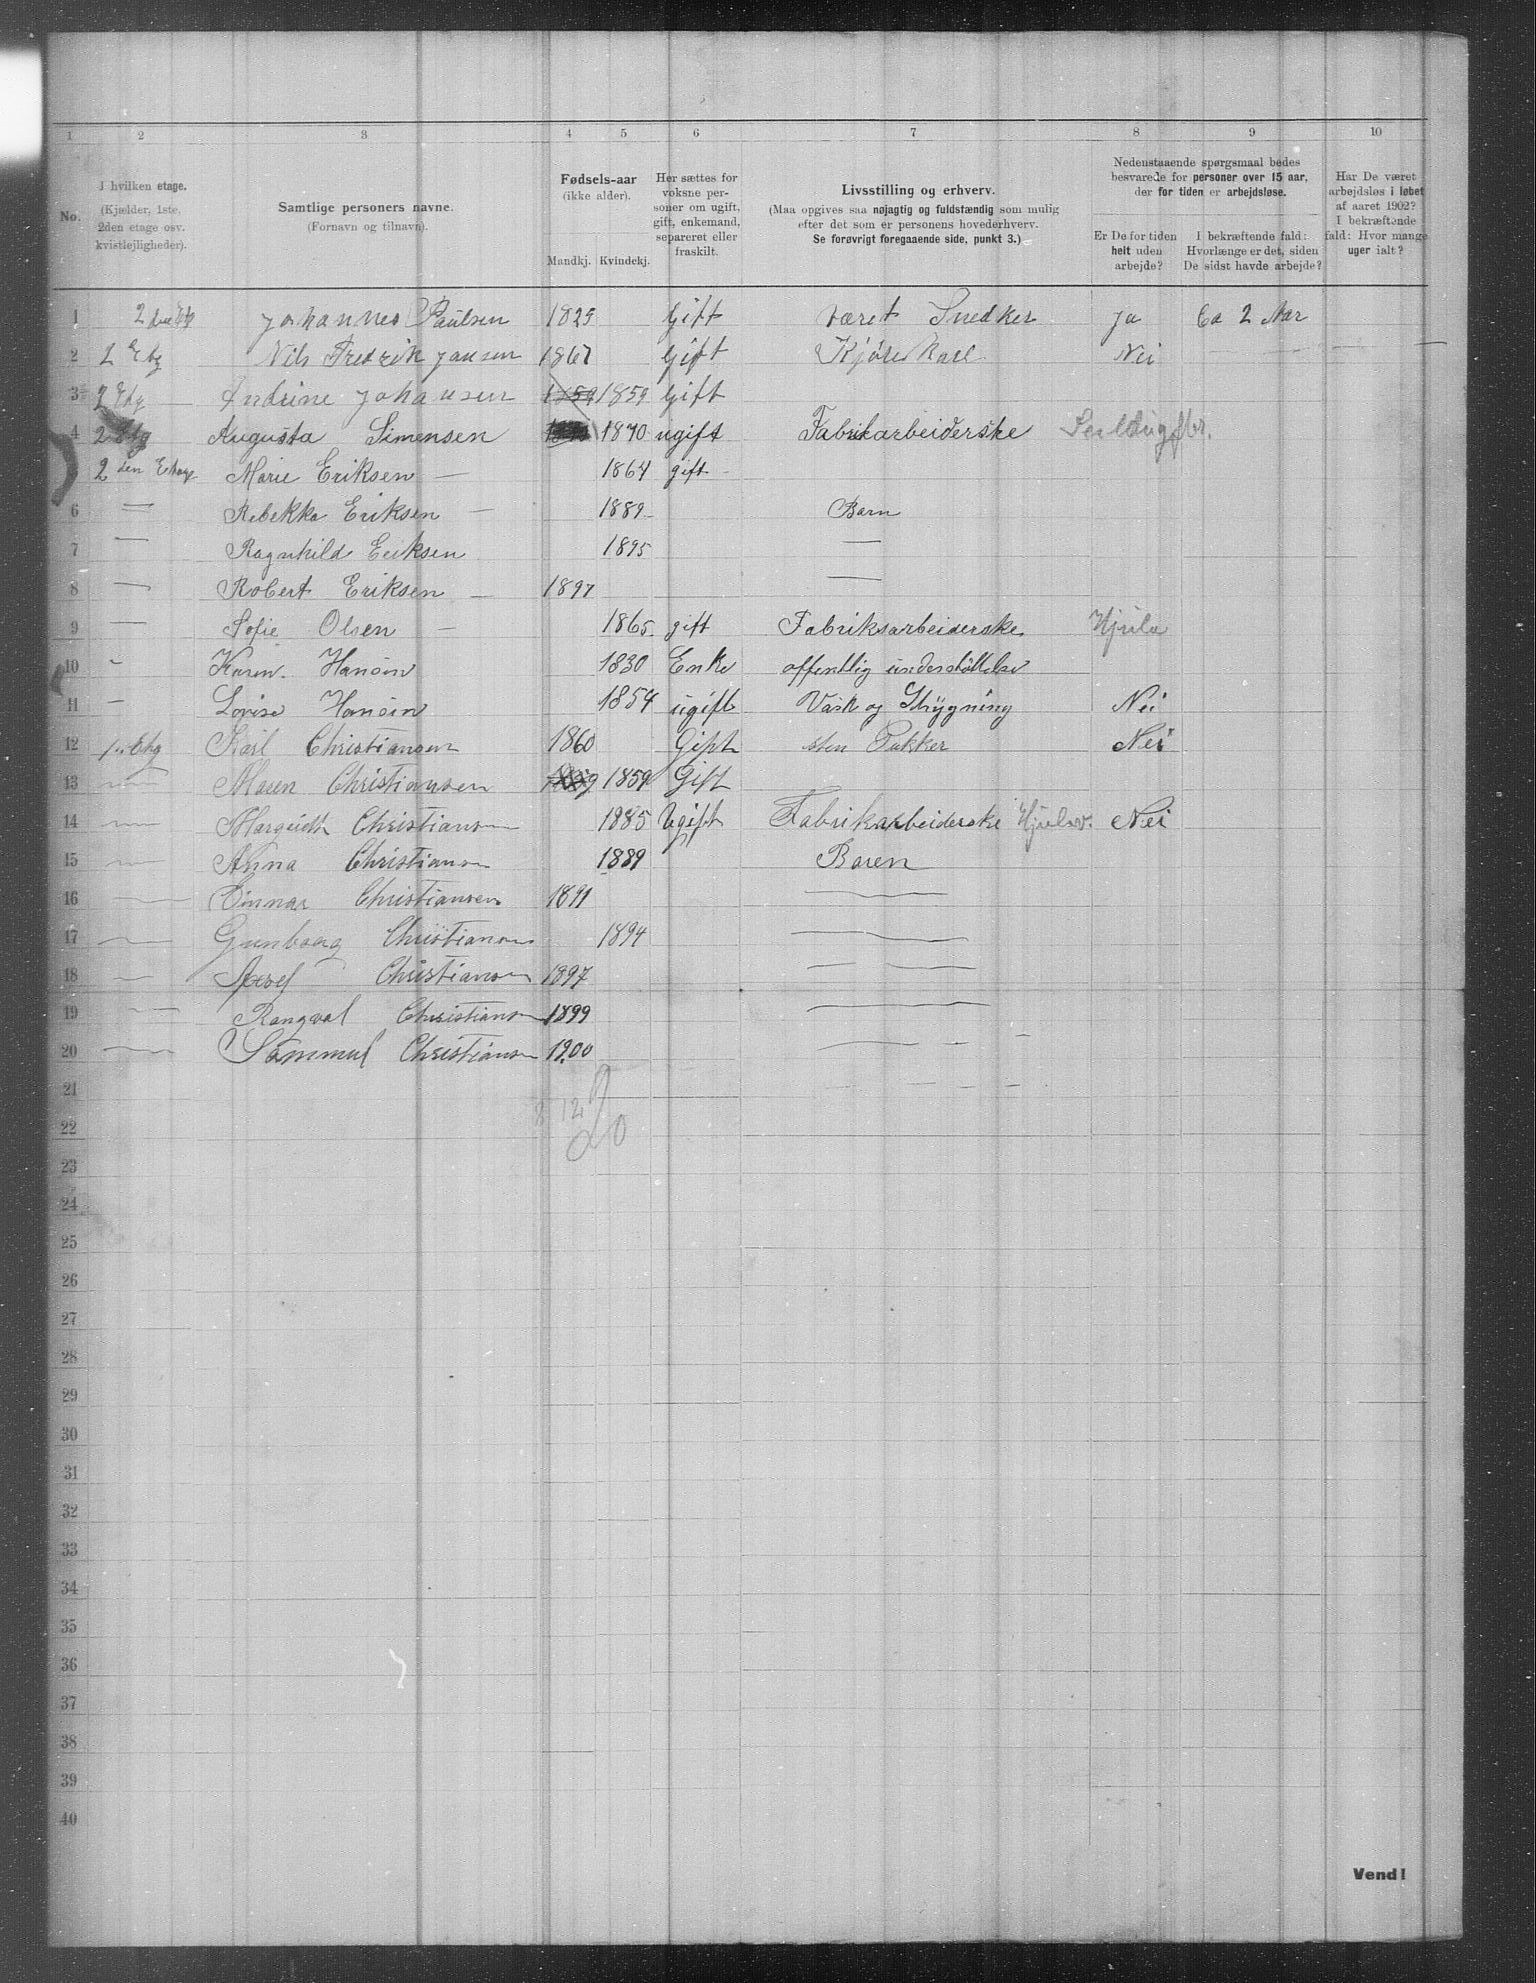 1 2 3 4 5 6 7 8 9 10
No.
I hvilken etage. (Kjælder, 1ste, 2den etage osv. kvistlejligheder).
Samtlige personers navne. (Fornavn og tilnavn).
Fødsels-aar (ikke alder). Mandkj. Kvindekj.
Her sættes for voksne personer om ugift, gift, enkemand, separeret eller fraskilt.
Livsstilling og erhverv. (Maa opgives saa nøjagtig og fuldstændig som mulig efter det som er personens hovederhverv. Se forøvrigt foregaaende side, punkt 3.)
Nedenstaaende spørgsmaal bedes besvarede for personer over 15 aar, der for tiden er arbejdsløse.
Er De for tiden helt uden arbejde?
I bekræftende fald: Hvorlænge er det, siden De sidst havde arbejde?
Har De været arbejdsløs i løbet af aaret 1902? I bekræftende fald: Hvor mange uger ialt?
1 2den Etg Johannes Paulsen 1825 Gift været Snedker Ja Ca 2 Aar
2 2 Etg Nils Fredrik Jansen 1867 Gift Kjørekarl Nei — —
3 2 Etg Andrine Johansen 1859 1859 Gift
4 2 Etg Augusta Simensen 1870 ugift Fabrikarbeiderske Seildugsfbr.
2den Etage Marie Eriksen — 1864 gift -
6 — Rebekka Eriksen — 1889 Barn
7 — Ragnhild Eriksen 1895 —
8 — Robert Eriksen — 1897 —
9 — Sofie Olsen — 1865 gift Fabriksarbeiderske Hjula
10 - Karen Hansen 1830 Enke offentlig understøttelse
11 - Lovise Hansen 1854 ugift Vask og Strygning Nei
12 1st Etg Karl Christiansen 1860 Gift sten Pakker Nei
13 — Maren Christiansen 1859 Gift
14 — Margrith Christiansen 1885 Ugift Fabrikarbeiderske Hjulav. Nei
15 — Anna Christiansen 1889 Baren
16 — Einnar Christiansen 1891 —
17 — Gunborg Christiansen 1894 —
18 — Christiansen 1897 — —
19 — Rangval Christiansen 1899 —
20 — Sammul Christiansen 1900 — -
21
8 12
22 20
23
24
25
26
27
28
29
30
31
32
33
34
35
36
37
38
39
40
Vend!